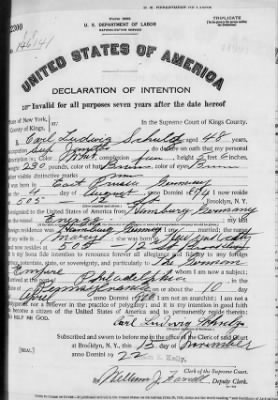 U. S. DEPARTMENT OF LABOR
TRIPLICATE
Form 2203
U. S. DEPARTMENT OF LABOR
NATURALIZATION SERVICE
2200
No. 146141
UNITED STATES OF AMERICA
DECLARATION OF INTENTION
Invalid for all purposes seven years after the date hereof
State of New York,
County of Kings.
In the Supreme Court of Kings County.
Carl Ludwig Schulz aged 48 years,
do declare on oath that my personal
description is: Color White, complexion fair, height 5 feet 6 inches,
230 pounds, color of hair Brown color of eyes Brown
visible distinctive marks
was born in East Prussia Germany
on the 4 day of August anno Domini 1874 I now reside
505 - 12 St Brooklyn, N.Y.
emigrated to the United States of America from Hamburg Germany
my last
foreign residence was Hamburg Germany
wife is Mary
and now resides at 505 - 12 St Brooklyn
It is my bona fide intention to renounce forever all allegiance and fidelity to any foreign
potentate, state, or sovereignty, and particularly to The German
Empire of whom I am now a subject;
arrived at the port of Philadelphia in the
Pennsylvania on or about the 10 day
April anno Domini I am not an anarchist; I am not a
polygamist nor a believer in the practice of polygamy; and it is my intention in good faith
to become a citizen of the United States of America and to permanently reside therein:
SO HELP ME GOD.
Carl Ludwig Schulz
Subscribed and sworn to before me in the office of the Clerk of said Court
at Brooklyn, N.Y., this 13 day of November
anno Domini 1922
[SEAL]
Kelly
Clerk of the Supreme Court.
By William J. Deputy Clerk.